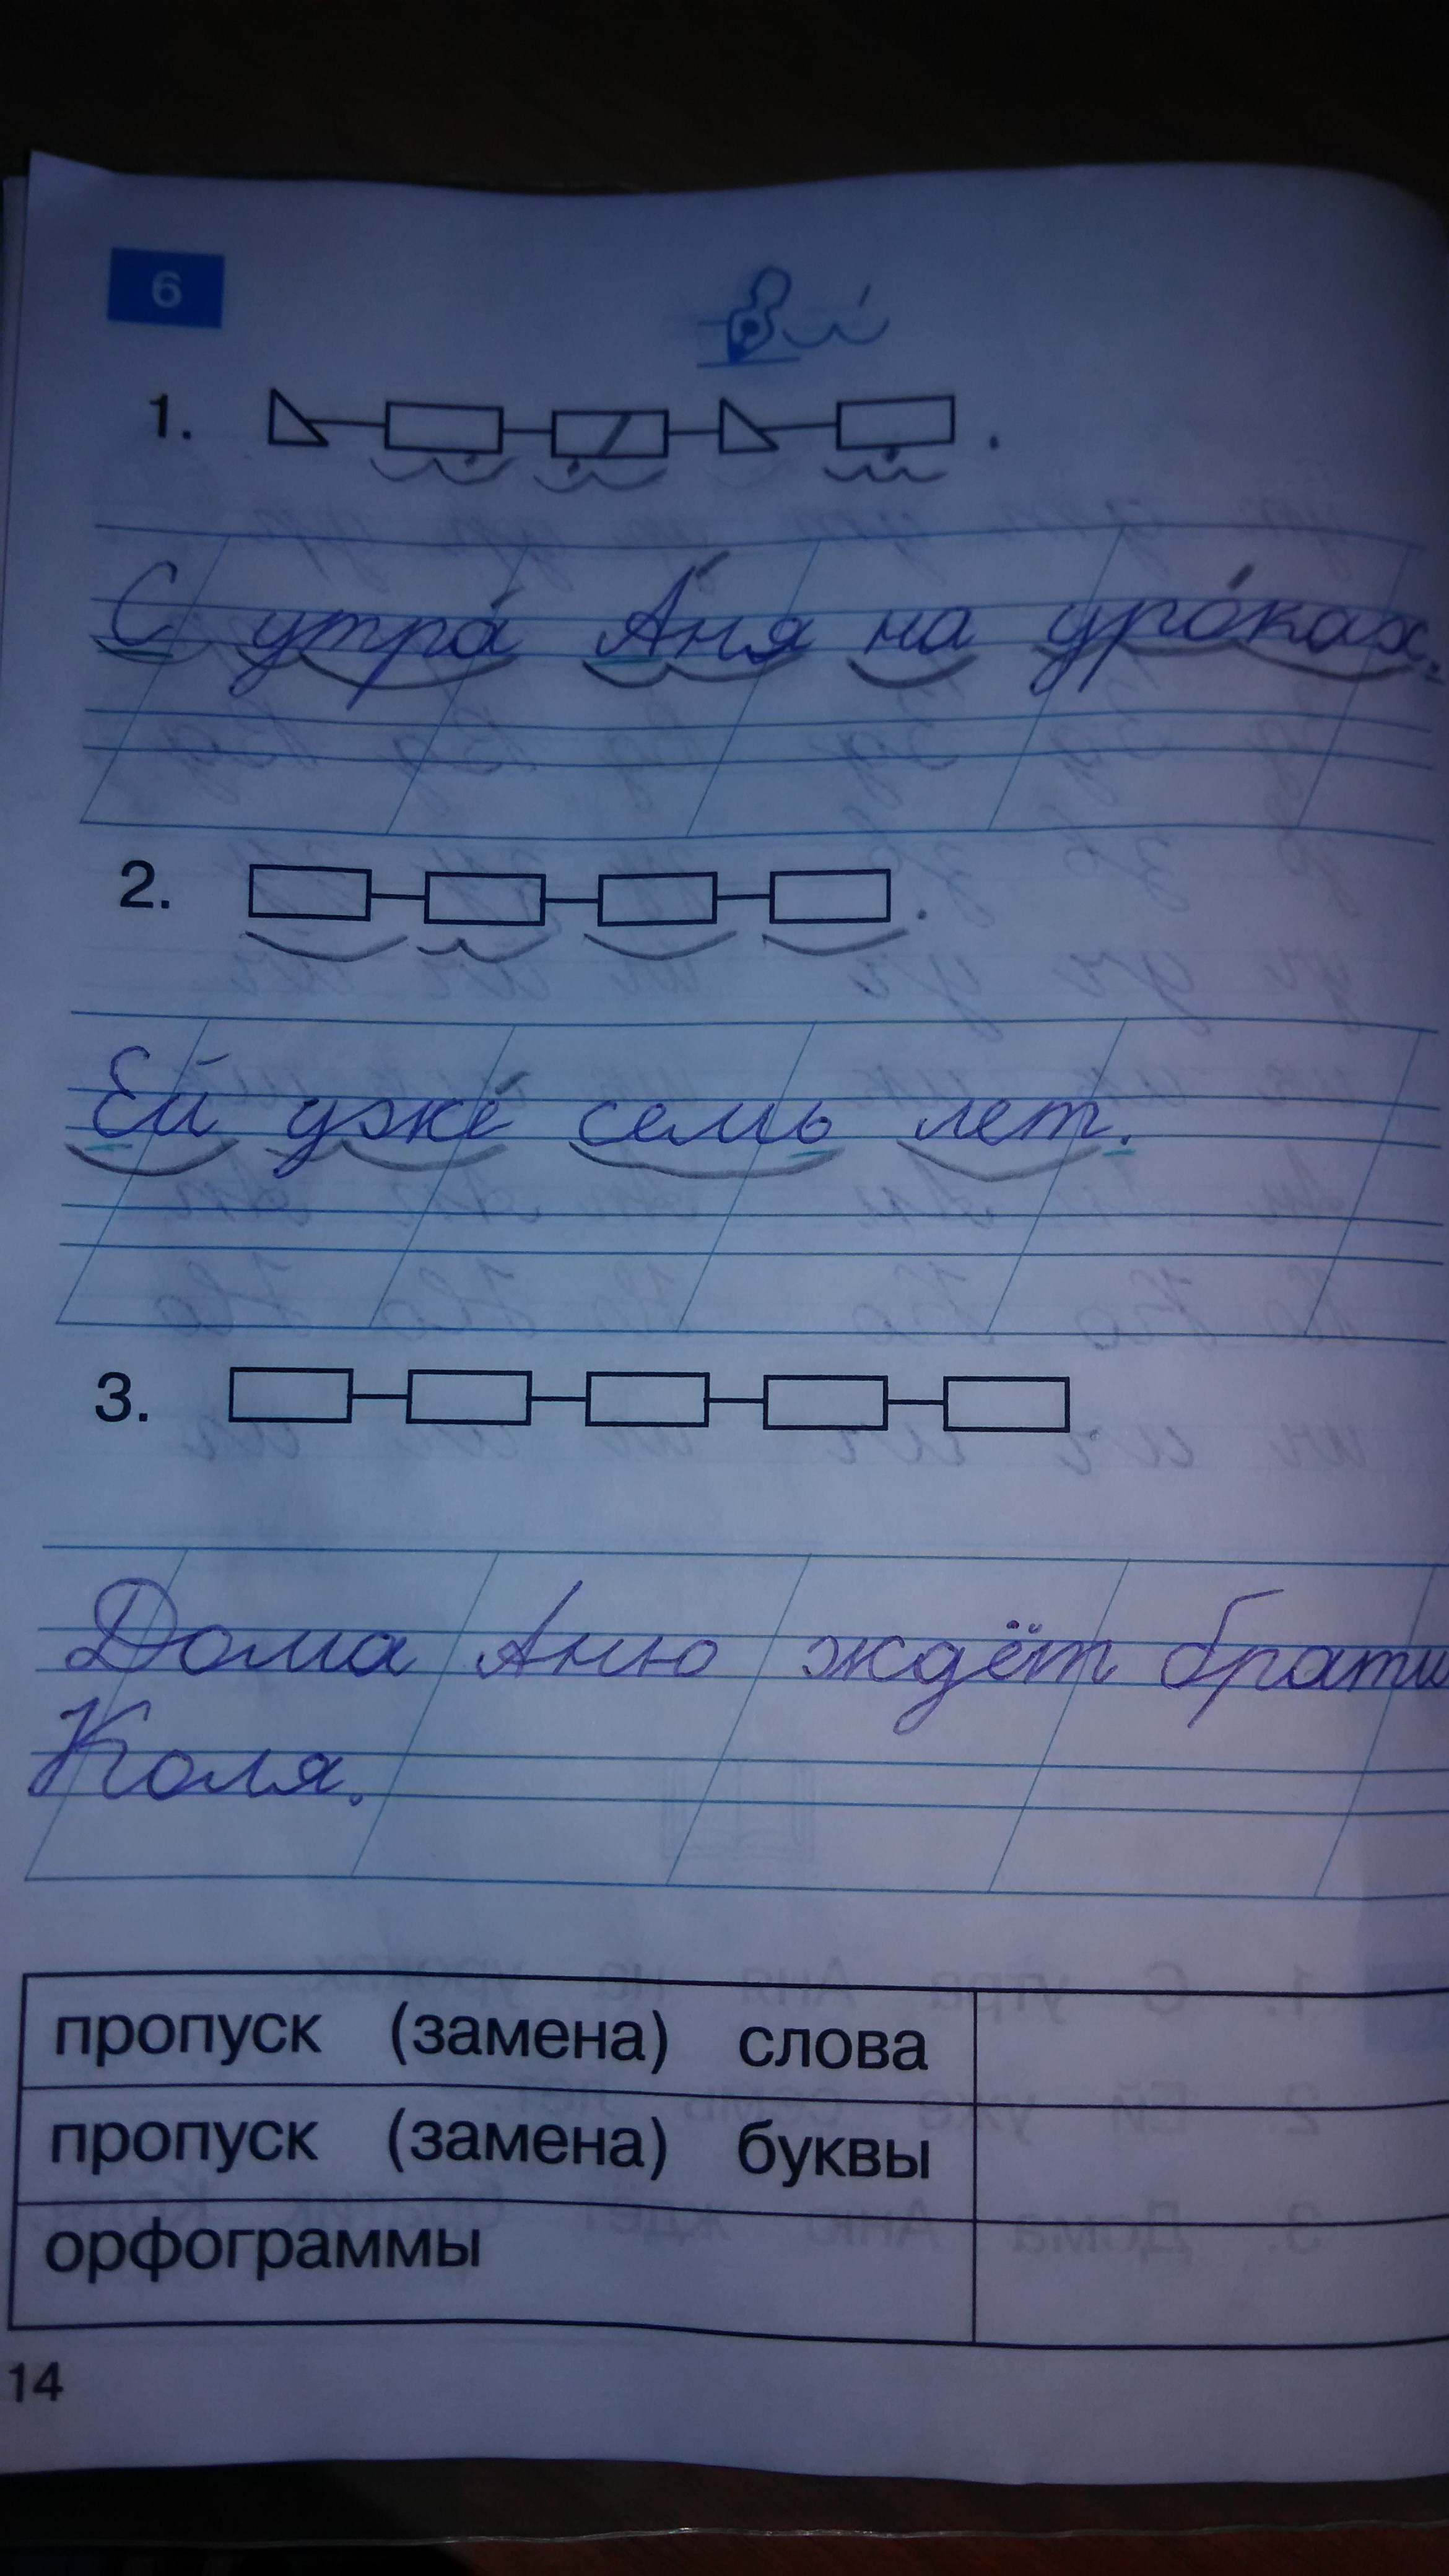 6
1.
С утра́ А́ня на уро́ках.
2.
Ей уже́ семь лет.
3.
Дома Аню ждёт брати
Коля.
пропуск (замена) слова
пропуск (замена) буквы
орфограммы
14